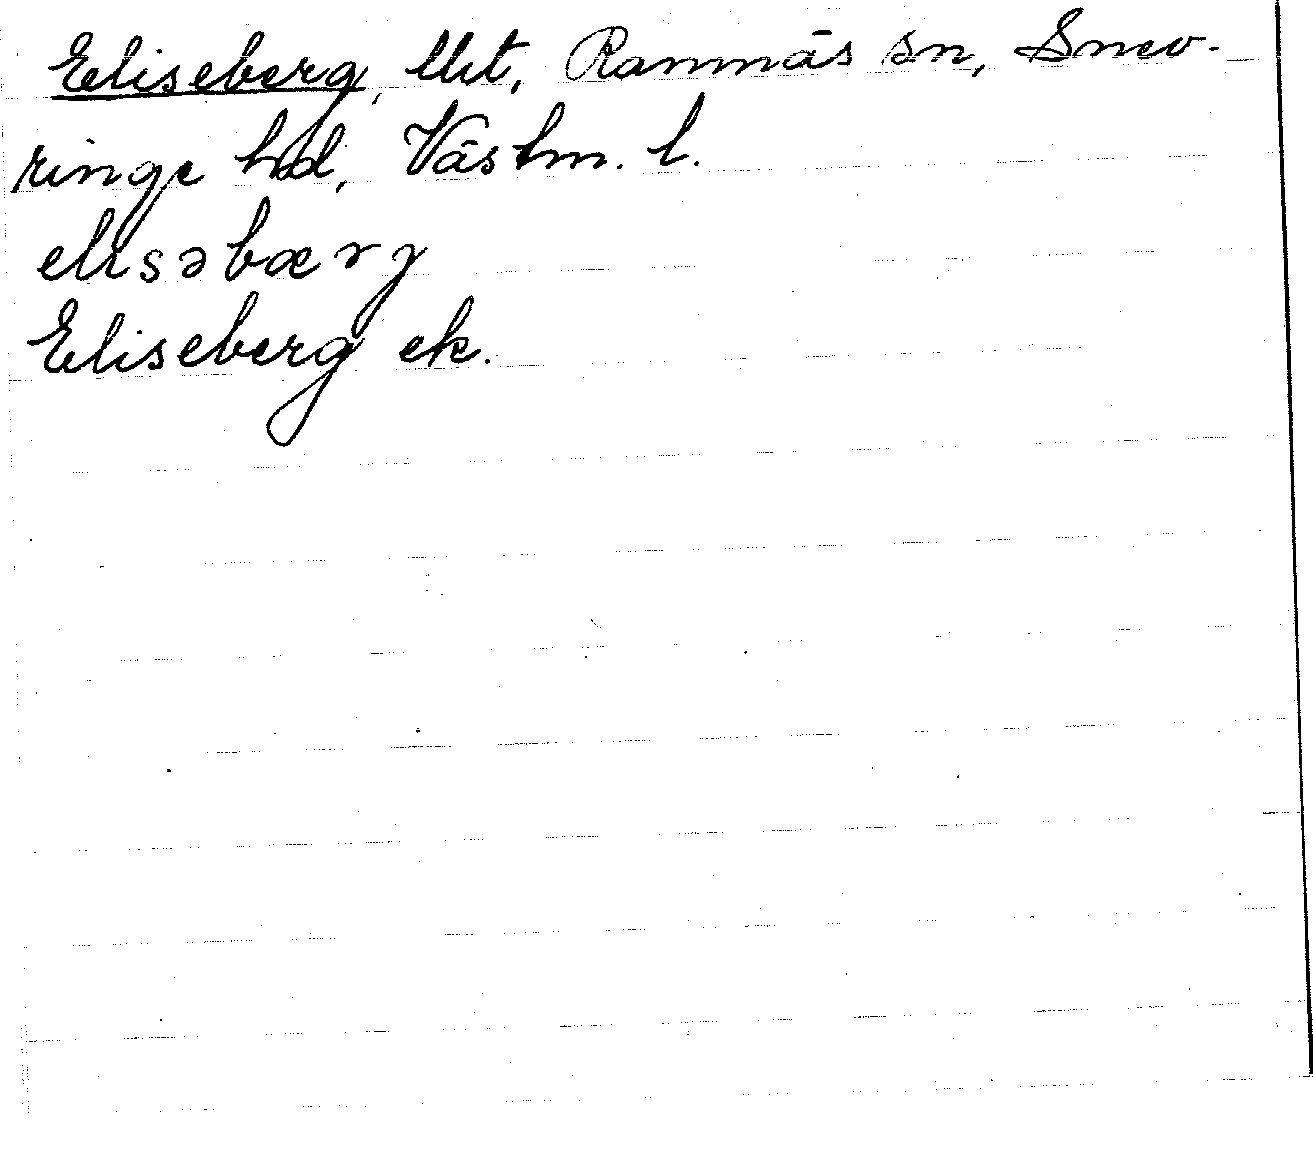 Eliseberg, lht, Ramnäs sn, Snev-
ringe hd, Västm. l.
elisəbærj
Eliseberg ek.